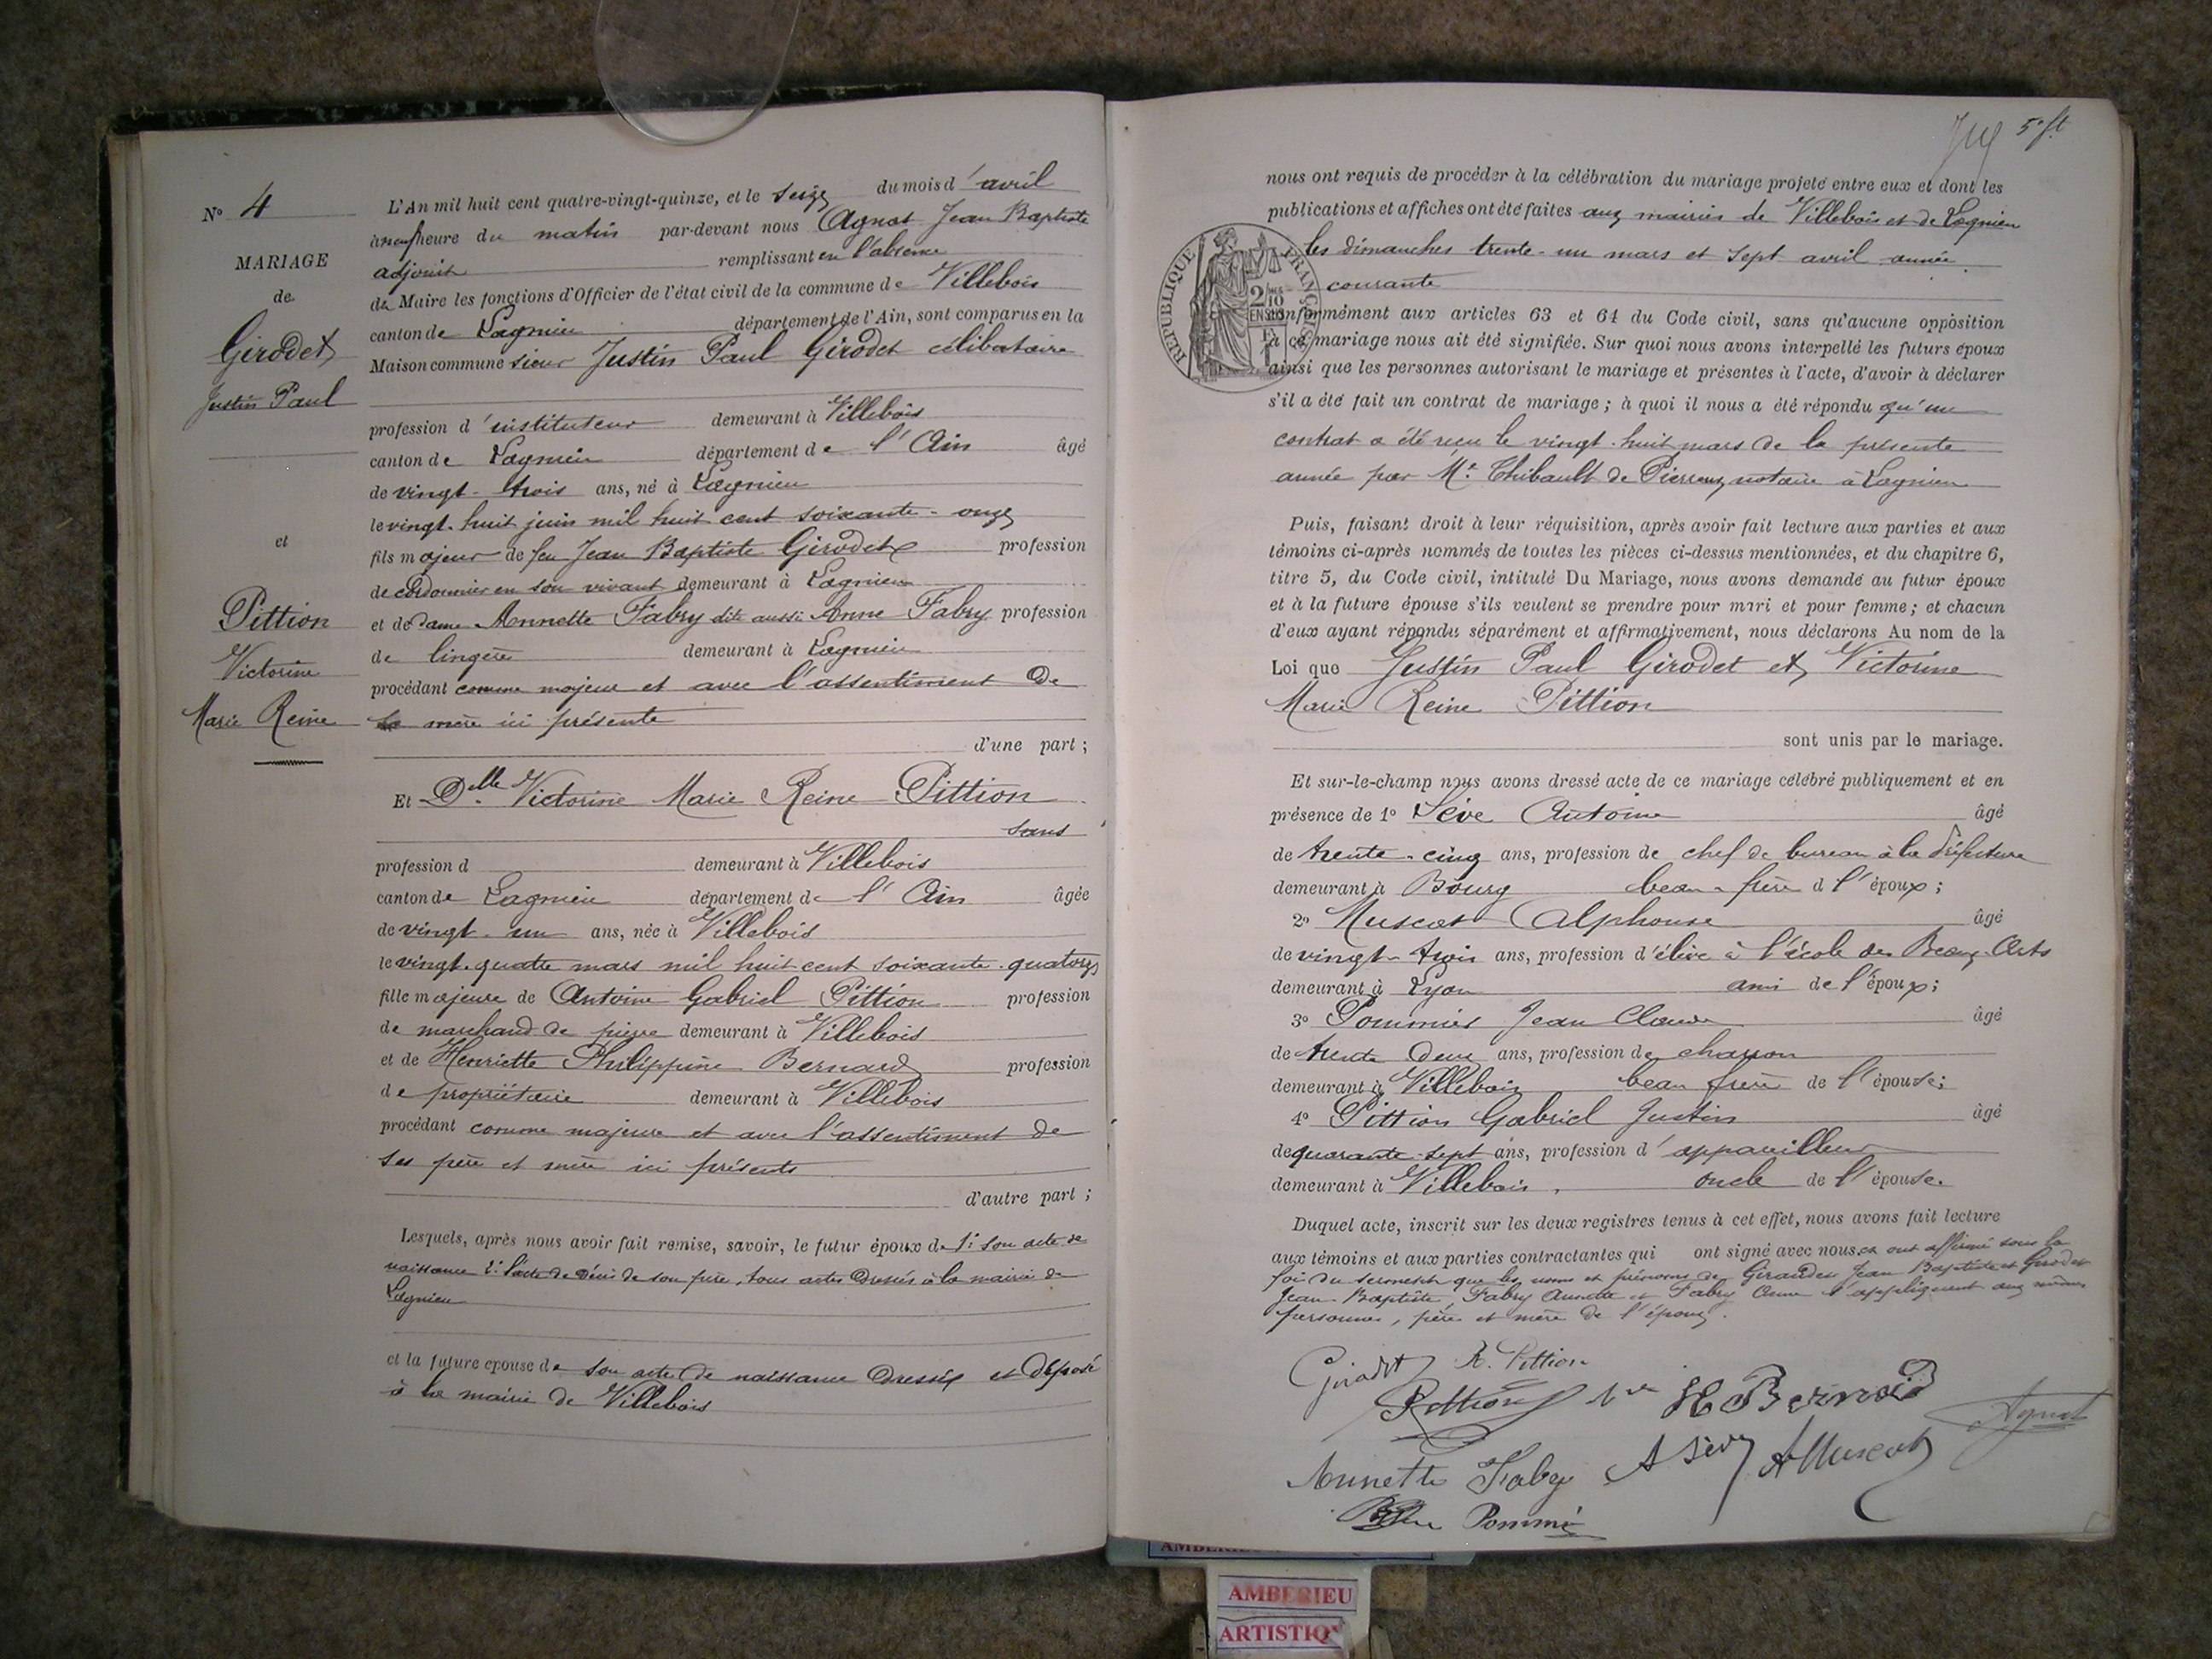 N° 4
MARIAGE
de
Girodet
Justin Paul
et
Pittion
Victorine
Marie Reine
L'An mil huit cent quatre-vingt-quinze, et le seize du mois d'avril
à neuf heure du matin par-devant nous Agnat Jean Baptiste
adjoint remplissant en l'absence
du Maire les fonctions d'Officier de l'état civil de la commune de Villebois
canton de Lagnieu département de l'Ain, sont comparus en la
Maison commune sieur Justin Paul Girodet célibataire
profession d'instituteur demeurant à Villebois
canton de Lagnieu département de l'Ain âgé
de vingt-trois ans, né à Lagnieu
le vingt-huit juin mil huit cent soixante-onze
fils majeur de feu Jean Baptiste Girodet profession
de cordonnier en son vivant demeurant à Lagnieu
et de dame Annette Fabry dite aussi Anne Fabry profession
de lingère demeurant à Lagnieu
procédant comme majeur et avec l'assentiment de
sa mère ici présente
d'une part ;
Et Delle Victorine Marie Reine Pittion
sans
profession d demeurant à Villebois
canton de Lagnieu département de l'Ain âgée
de vingt-un ans, née à Villebois
le vingt-quatre mars mil huit cent soixante-quatorze
fille majeure de Antoine Gabriel Pittion profession
de marchand de pierre demeurant à Villebois
et de Henriette Philippine Bernard profession
de propriétaire demeurant à Villebois
procédant comme majeure et avec l'assentiment de
ses père et mère ici présents
d'autre part ;
Lesquels, après nous avoir fait remise, savoir, le futur époux de 1° son acte de
naissance 2° l'acte de décès de son père, tous actes dressés à la mairie de
Lagnieu
et la future epouse de son acte de naissance dressé et déposé
à la mairie de Villebois
5e ft
nous ont requis de procéder à la célébration du mariage projeté entre eux et dont les
publications et affiches ont été faites aux mairies de Villebois et de Lagnieu
les dimanches trente-un mars et sept avril année
courante
RÉPUBLIQUE FRANÇAISE
2/10 EN SUS
conformément aux articles 63 et 64 du Code civil, sans qu'aucune opposition
à ce mariage nous ait été signifiée. Sur quoi nous avons interpellé les futurs époux
ainsi que les personnes autorisant le mariage et présentes à l'acte, d'avoir à déclarer
s'il a été fait un contrat de mariage ; à quoi il nous a été répondu qu'un
contrat a été reçu le vingt-huit mars de la présente
année par Me Thibault de Pierreux notaire à Lagnieu
Puis, faisant droit à leur réquisition, après avoir fait lecture aux parties et aux
témoins ci-après nommés de toutes les pièces ci-dessus mentionnées, et du chapitre 6,
titre 5, du Code civil, intitulé Du Mariage, nous avons demandé au futur époux
et à la future épouse s'ils veulent se prendre pour mari et pour femme ; et chacun
d'eux ayant répondu séparément et affirmativement, nous déclarons Au nom de la
Loi que Justin Paul Girodet et Victorine
Marie Reine Pittion
sont unis par le mariage.
Et sur-le-champ nous avons dressé acte de ce mariage célébré publiquement et en
présence de 1° Sève Antoine âgé
de trente-cinq ans, profession de chef de bureau à la préfecture
demeurant à Bourg beau-frère d l'époux ;
2° Muscat Alphonse âgé
de vingt-trois ans, profession d'élève à l'école des Beaux-Arts
demeurant à Lyon ami de l'époux ;
3° Pommier Jean Claude âgé
de trente deux ans, profession de charron
demeurant à Villebois beau frère de l'épouse ;
4° Pittion Gabriel Justin âgé
de quarante-sept ans, profession d'appareilleur
demeurant à Villebois, oncle de l'épouse.
Duquel acte, inscrit sur les deux registres tenus à cet effet, nous avons fait lecture
aux témoins et aux parties contractantes qui ont signé avec nous et ont affirmé sous la
foi du serment que les noms et prénoms de Giraudet Jean Baptiste et Girodet
Jean-Baptiste, Fabry Annette et Fabry Anne s'appliquent aux mêmes
personnes, père et mère de l'époux.
Girodet R. Pittion
Pittion H Bernard
Agnat
Annette Fabry A Sève A Muscat
Pommier
AMBERIEU
ARTISTIQ